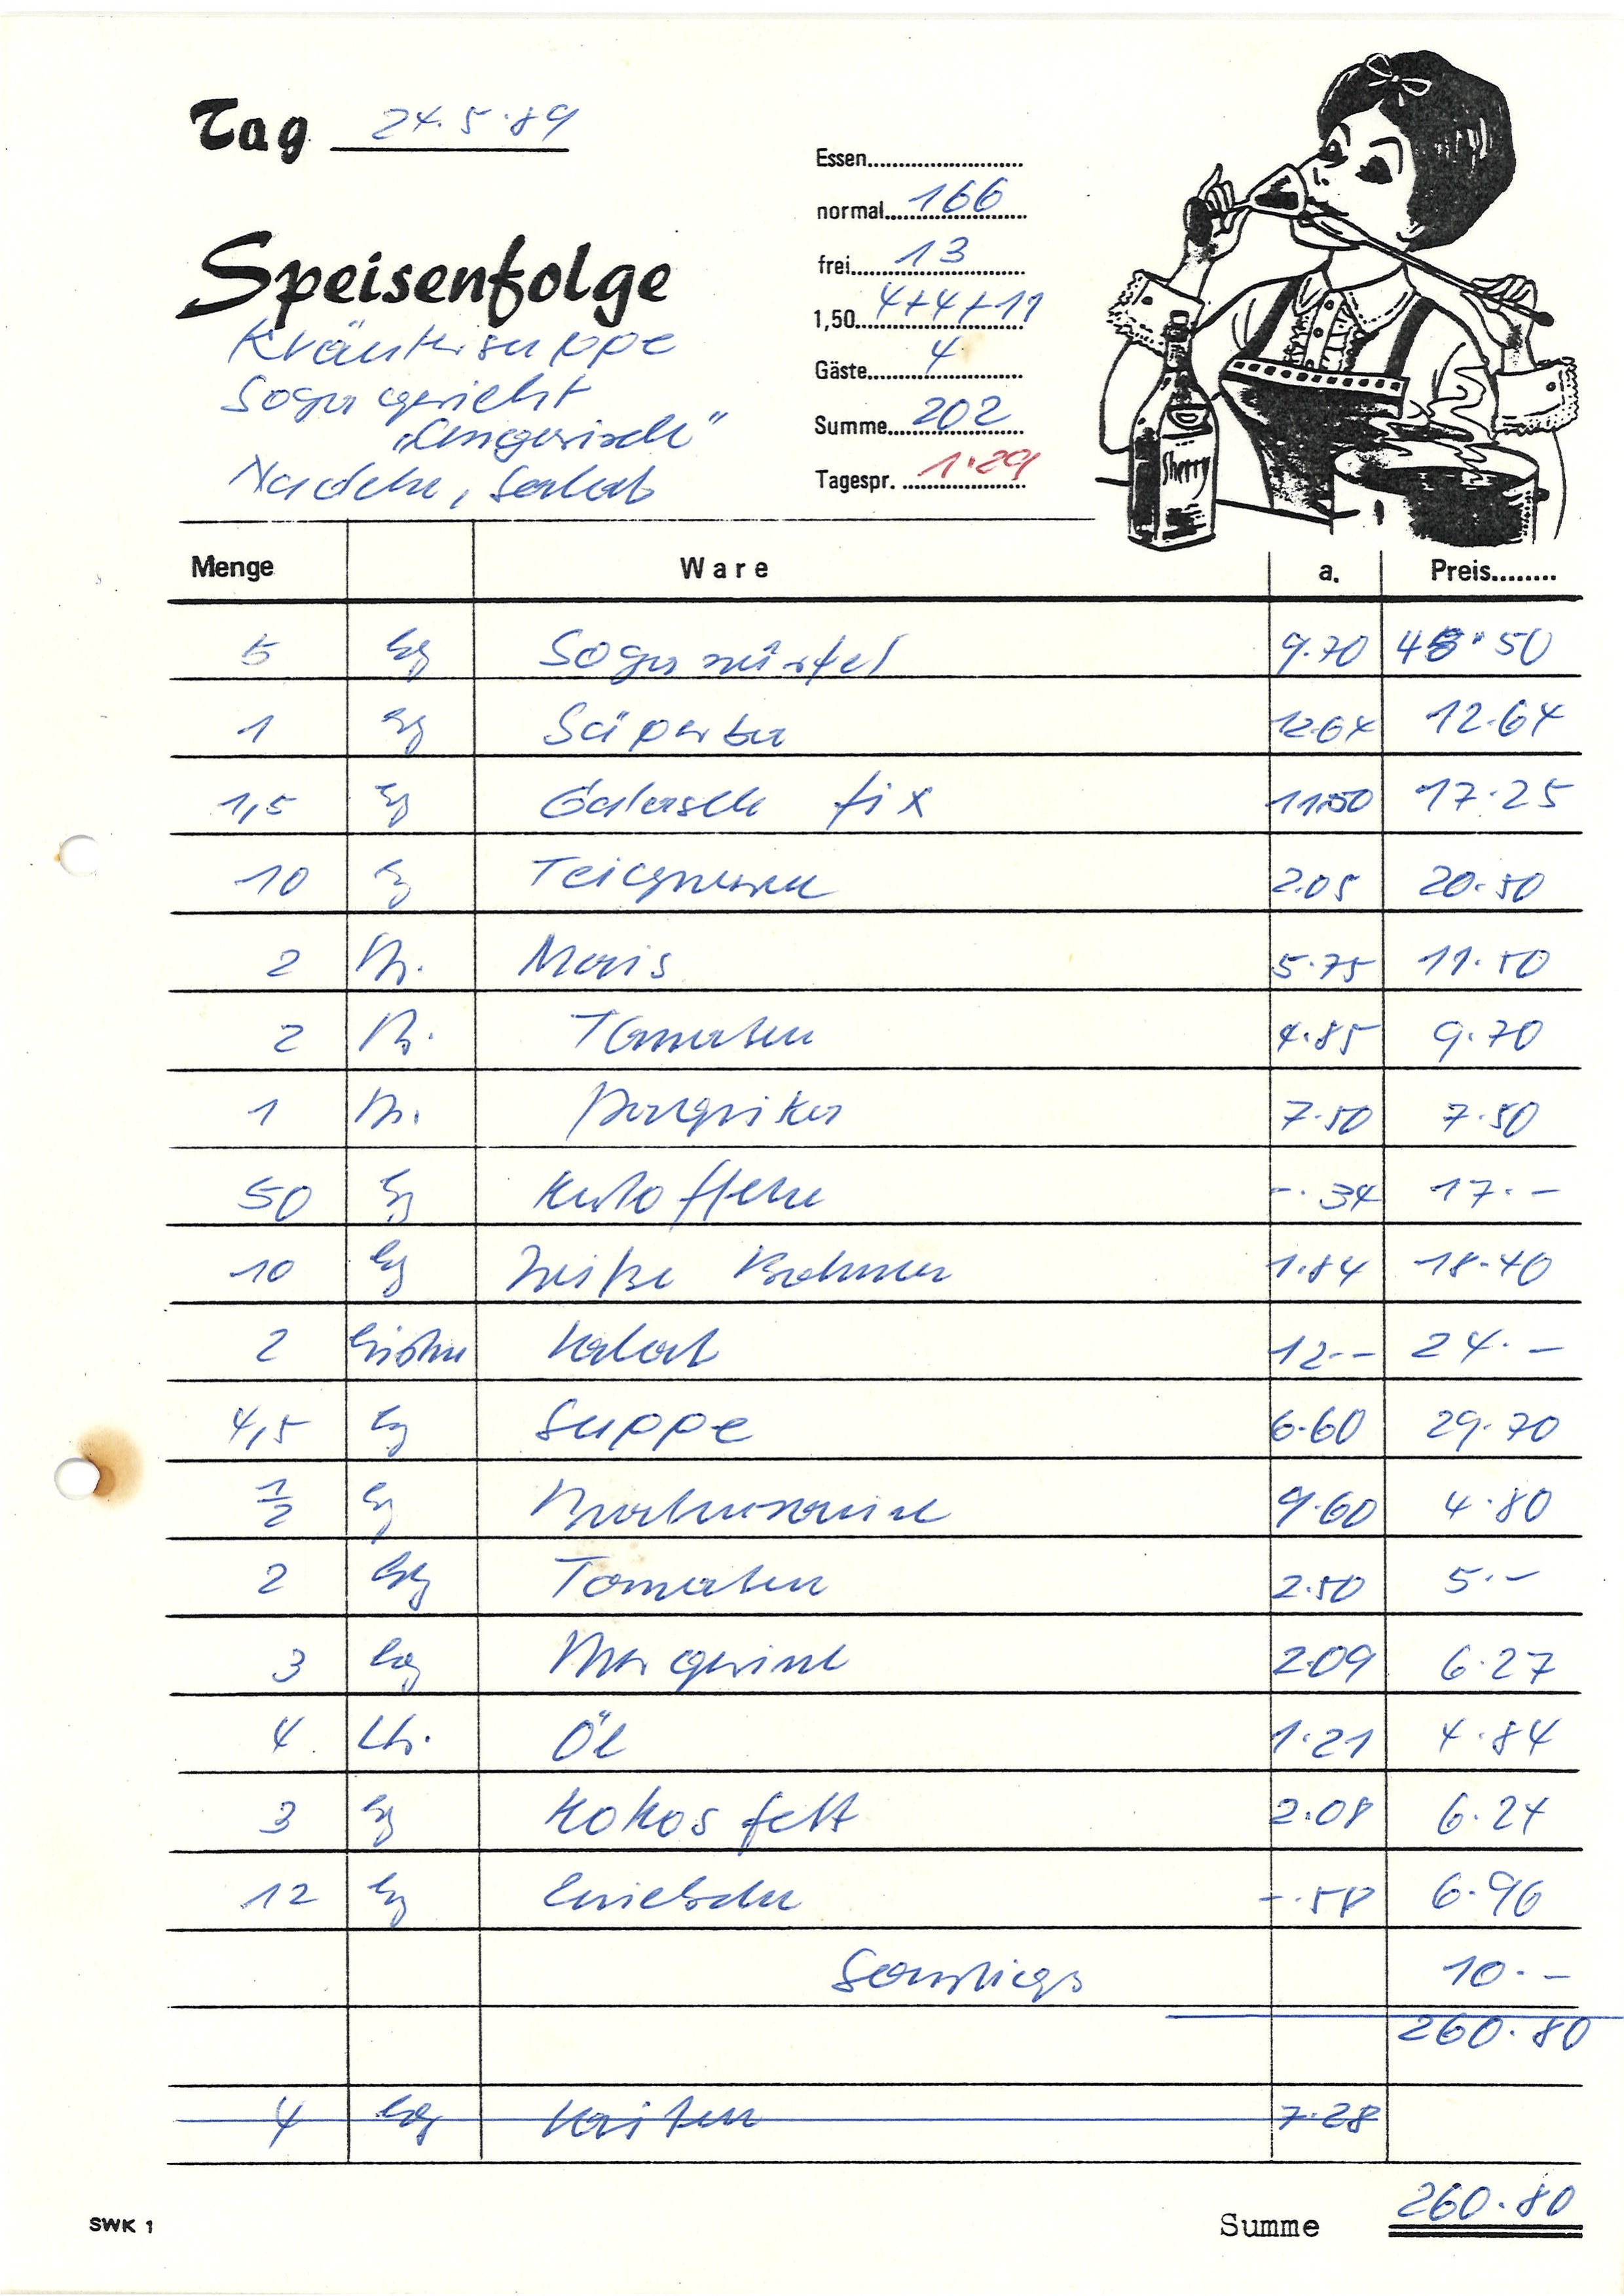 Tag 24.5.89
Essen
normal 166
frei 13
1,50 4+4+11
Gäste 4
Summe 202
Tagespr. 1.29
Speisenfolge
Kräutersuppe
Soja gericht
„Ungarisch"
Nudeln, Salat
Sherry
Menge Ware a. Preis
5 kg Soja würfel 9.70 48.50
1 kg 12.64 12.64
1,5 kg Gulasch fix 11.50 17.25
10 kg Teigwaren 2.05 20.50
2 Ds. Mais 5.75 11.50
2 Ds. Tomaten 4.85 9.70
1 Ds. Paprika 7.50 7.50
50 kg Kartoffeln -.34 17.-
10 kg Weiße Bohnen 1.84 18.40
2 Kisten Salat 12.- 24.-
4,5 kg Suppe 6.60 29.70
1/2 kg 9.60 4.80
2 kg Tomaten 2.50 5.-
3 kg Margarine 2.09 6.27
4 Ltr. Öl 1.21 4.84
3 kg Kokosfett 2.08 6.24
12 kg Zwiebeln -.58 6.96
Sonstiges 10.-
260.80
4 kg 7.28
Summe 260.80
SWK 1